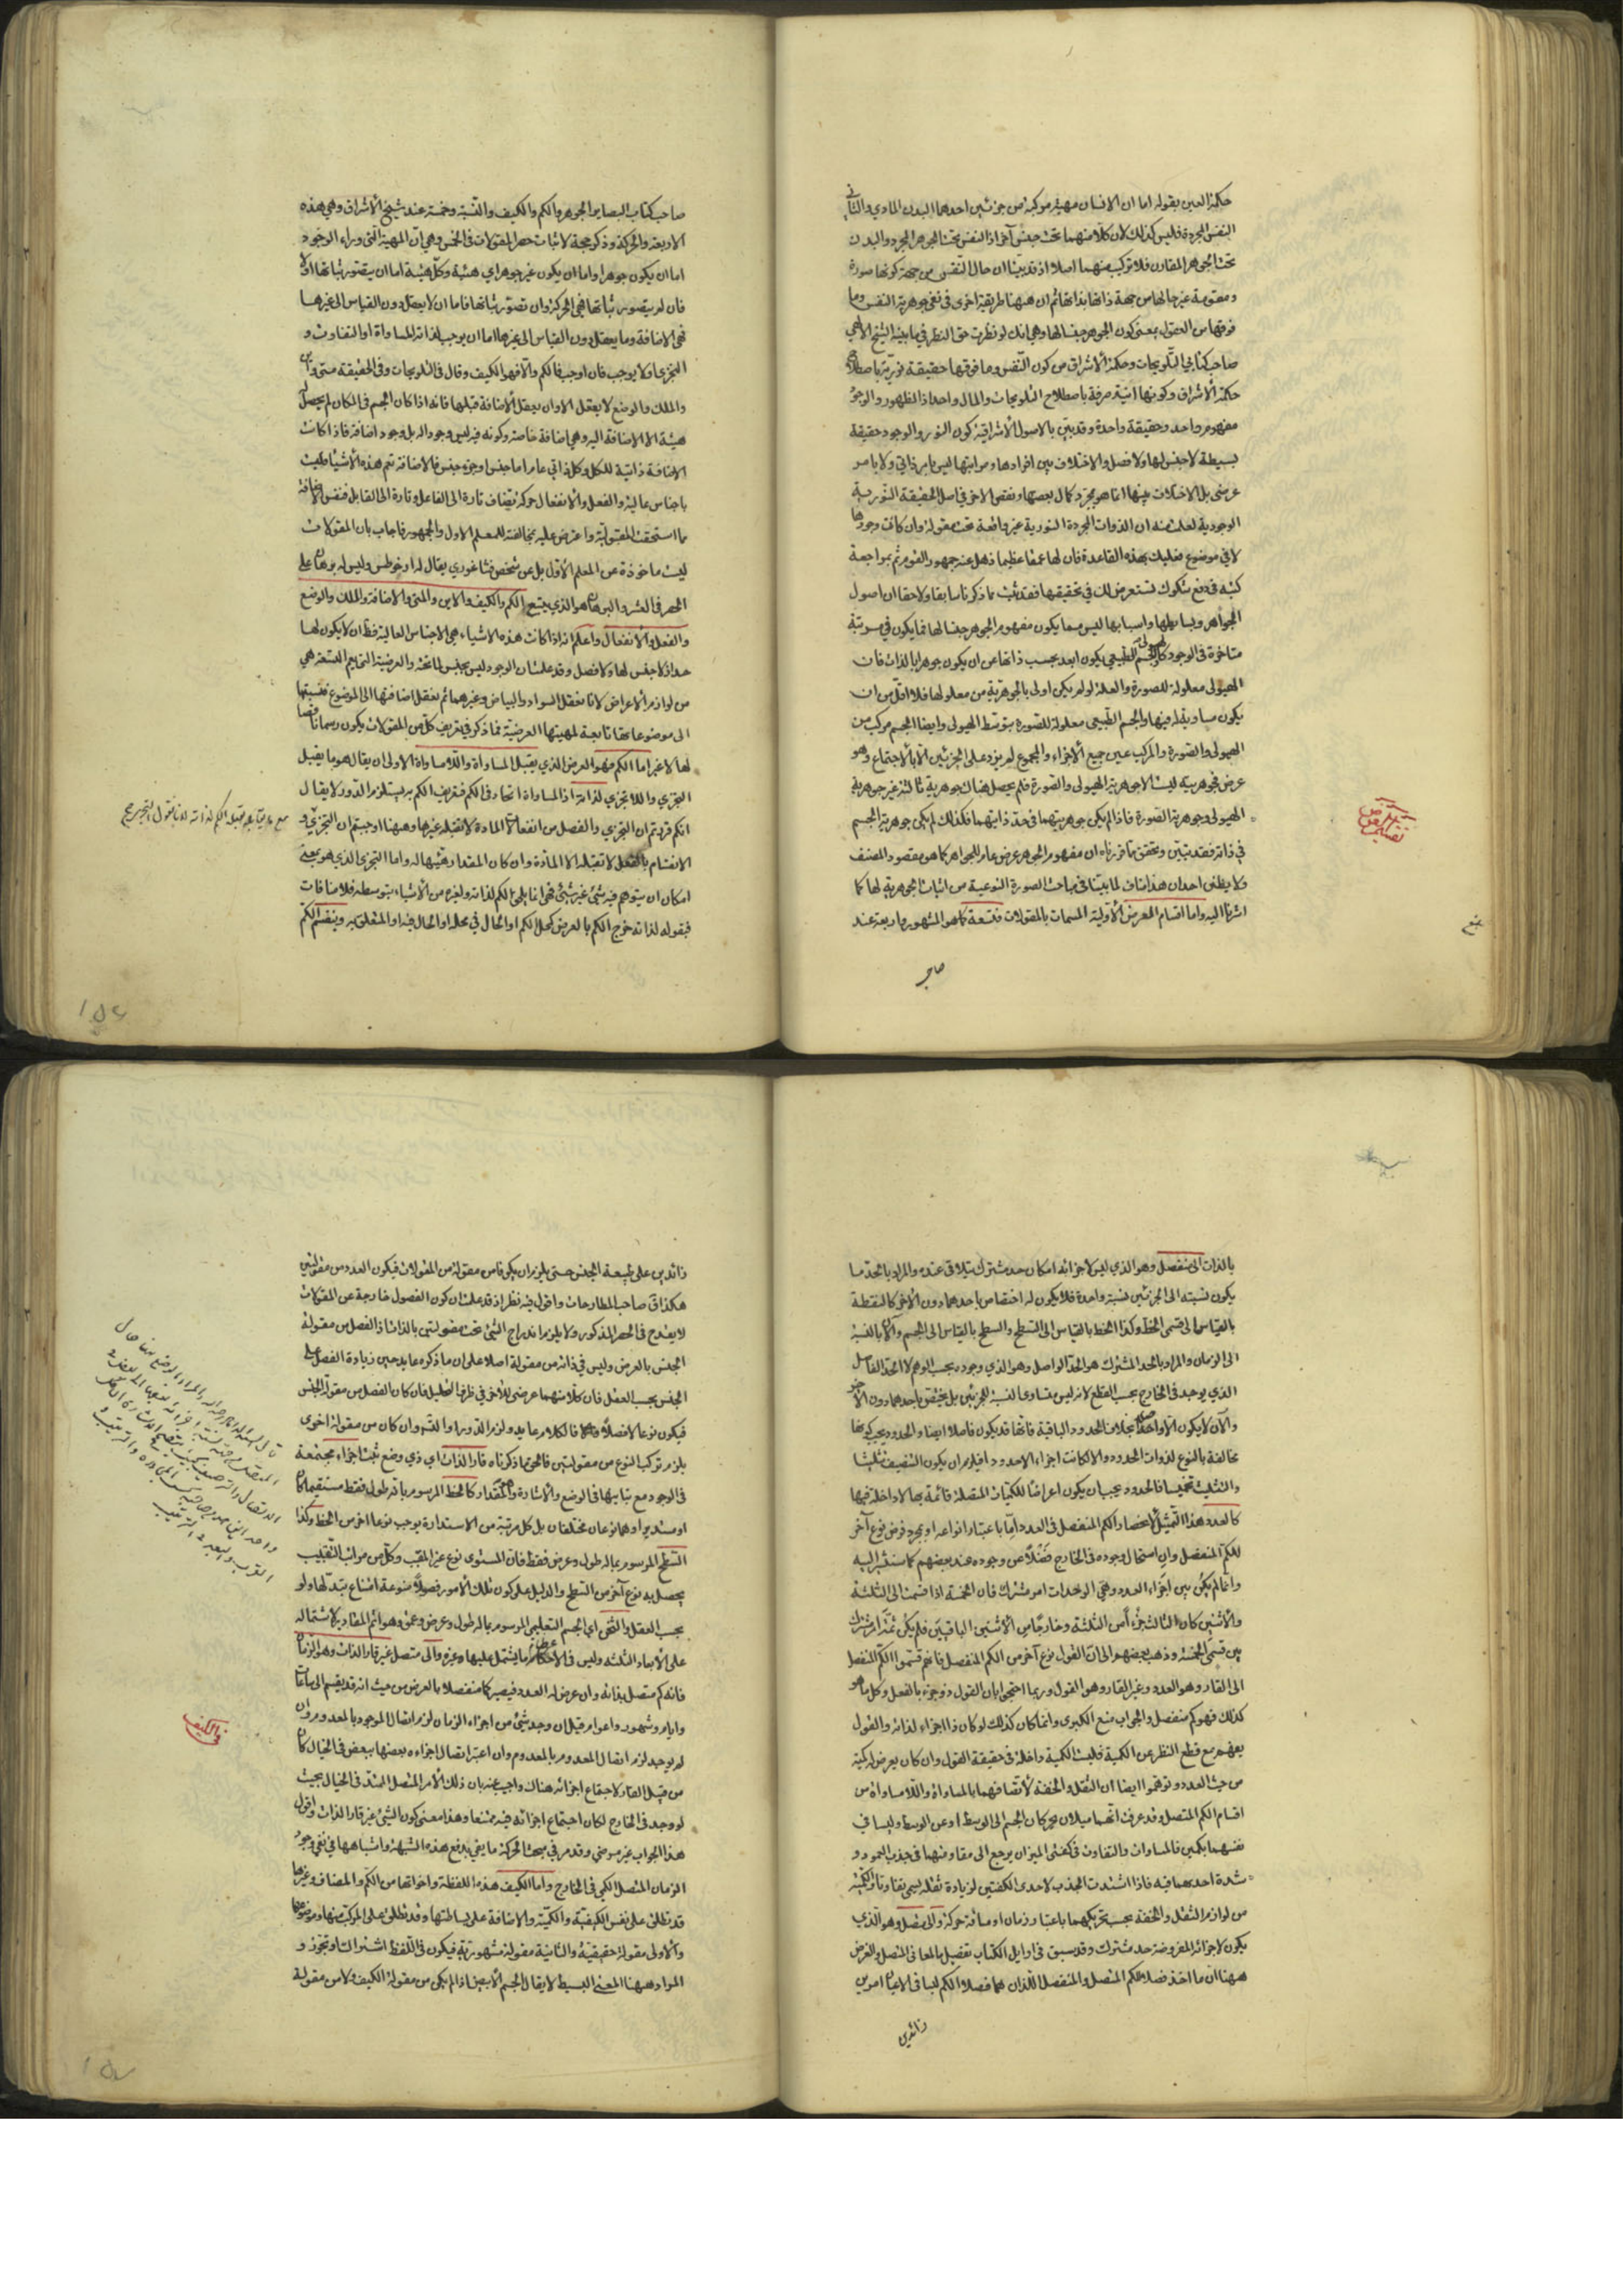 حكمة العين بقوله اما ان الانسان مهية مركبة من جزئين احدهما البدن المادي والثاني
النفس المجردة فليس كذلك لان كلا منهما تحت جنس آخر اذ النفس تحت الجوهر المجرد والبدن
تحت الجوهر المقارن فلا تركيب منهما اصلا اذ قد بيّنا ان حال النفس من جهة كونها صورة
ومقومة غير حالها من جهة ذاتها بذاتها ثم ان ههنا طريقة اخرى في نفي جوهرية النفس وما
فوقها من العقول بمعنى كون الجوهر جنسا لها وهي انك لو نظرت حق النظر في ما بينه الشيخ الالهي
صاحب كتابي التلويحات وحكمة الأشراق من كون النفس وما فوقها حقيقة نورية باصطلاح
حكمة الأشراق وكونها انية صرفة باصطلاح التلويحات والمال واحد اذ الظهور والوجود
مفهوم واحد وحقيقة واحدة وقد بين بالاصول الأشراقية كون النور والوجود حقيقة
بسيطة لا جنس لها ولا فصل والاختلاف بين افرادها ومراتبها ليس بامر ذاتي ولا بامر
عرضي بل الاختلاف بينها انما هو بمجرد كمال بعضها ونقص الاخر في اصل الحقيقة النورية
الوجودية لعلمت منه ان الذوات المجردة النورية غير واقعة تحت مقولة وان كانت وجودها
لا في موضوع فعليك بهذه القاعدة فان لها عمقا عظيما ذهل عنه جمهور القوم ثم بمراجعة
كتبه في دفع شكوك تستعرض لك في تحقيقها فقد ثبت بما ذكرنا سابقا ولاحقا ان اصول
الجواهر وبسايطها واسبابها ليس مما يكون مفهوم الجوهر جنسا لها فما يكون في مرتبة
متاخرة في الوجود كالهيولى والجسم الطبيعي يكون ابعد بحسب ذاتها من ان يكون جوهرا بالذات فان
الهيولى معلولة للصورة والعلة لو لم يكن اولى بالجوهرية من معلولها فلا اقل من ان
يكون مساوية له فيها والجسم الطبيعي معلولة للصورة بتوسط الهيولى وايضا الجسم مركب من
الهيولى والصورة والمركب عين جميع الأجزاء والمجموع لم يزد على الجزئين الا بالاجتماع وهو
عرض فجوهريته ليست الا جوهرية الهيولى والصورة فلم يحصل هناك جوهرية ثالثة غير جوهرية
الهيولى وجوهرية الصورة فاذا لم يكن جوهريتهما في حد ذاتيهما فكذلك لم يكن جوهرية الجسم
في ذاته فقد تبين وتحقق ما قررناه ان مفهوم الجوهر عرض عام للجواهر كما هو مقصود المصنف
ولا يظنن احد ان هذا مناف لما بيّنا في مباحث الصورة النوعية من اثبات الجوهرية لها كما
اشرنا اليه واما اقسام العرض الأولية المسمات بالمقولات فتسعة كما هو المشهور واربعة عند
صاحب
صاحب كتاب البصاير الجوهر والكم والكيف والنسبة وخمسة عند شيخ الأشراق وهي هذه
الاربعة والحركة وذكر حجة لاثبات حصر المقولات في الخمس وهي ان المهية التي وراء الوجود
اما ان يكون جوهرا واما ان يكون غير جوهر اي هيئة وكل هيئة اما ان يتصور ثباتها او لا
فان لم يتصور ثباتها فهي الحركة وان تصور ثباتها فاما ان لا يعقل دون القياس الى غيرها
فهي الاضافة وما يعقل دون القياس الى غيرها اما ان يوجب لذاته المساواة او التفاوت و
التجزي او لا يوجب فان اوجب فالكم والا فهو الكيف وقال في التلويحات وفي الحقيقة متى واين
والملك والوضع لا يعقل الا وان يعقل الاضافة قبلها فانه اذا كان الجسم في المكان لم يحصل له
هيئة الا الاضافة اليه وهي اضافة خاصة وكونه فيه ليس وجودا له بل وجود اضافة فاذا كانت
الاضافة ذاتية للكل وكل ذاتي عام اما جنس او جزء جنس فالاضافة تعم هذه الأشياء وليست
باجناس عالية والفعل والانفعال حركة تضاف تارة الى الفاعل وتارة الى القابل فنفس الاضافة
ما استحقت المقولية واعترض عليه بمخالفته للمعلم الاول والجمهور فاجاب بان المقولات
ليست ماخوذة عن المعلم الأول بل عن شخص فيثاغوري يقال له ارخوطس وليس له برهان على
الحصر في العشر والبرهان هو الذي يتبع الكم والكيف والاين والمتى والاضافة والملك والوضع
والفعل والانفعال واعلم انه اذا كانت هذه الاشياء هي الاجناس العالية فظ ان لا يكون لها
حد اذ لا جنس لها ولا فصل وقد علمت ان الوجود ليس بجنس لما تحته والعرضية التي تعم التسعة هي
من لوازم الأعراض لانا نعقل السواد والبياض وغيرهما ثم نعقل اضافتها الى الموضوع فنسبتها
الى موضوعاتها تابعة لمهيتها العرضية فما ذكر في تعريف كل من المقولات يكون رسما ناقصا
لها لا غير اما الكم فهو العرض الذي يقبل المساواة واللامساواة الاولى ان يقال هو ما يقبل
التجزي واللاتجزي لذاته اذ المساواة اتحاد في الكم فتعريف الكم به يستلزم الدور لا يقال
انكم قررتم ان التجزي والفصل من انفعالات المادة لا تقبله غيرها وههنا اوجبتم ان التجزي و
الانقسام بالفعل لا تقبله الا المادة وان كان المقدار مهيئا له واما التجزي الذي هو بمعنى
امكان ان يتوهم فيه شيء غير شيء فهي انما يلحق الكم لذاته ولغيره من الأشياء بتوسطه فلا منافات
فبقوله لذاته خرج الكم بالعرض كمحل الكم او الحال في محله او الحال فيه او المتعلق به وينقسم الكم
بالذات الى منفصل وهو الذي ليس لاجزائه امكان حد مشترك يتلاقى عنده والمراد بالحد ما
يكون نسبته الى الجزئين نسبة واحدة فلا يكون له اختصاص باحدهما دون الأخر كالنقطة
بالقياس الى قسمي الخط وكذا الخط بالقياس الى السطح والسطح بالقياس الى الجسم والآن بالنسبة
الى الزمان والمراد بالحد المشترك هو الحد الواصل وهو الذي وجوده بحسب الوهم لا الحد الفاصل
الذي يوجد في الخارج بحسب القطع لانه ليس متساوي النسبة للجزئين بل يختص باحدهما دون الأخر
والآن لا يكون الا واصلا بخلاف الحدود الباقية فانها قد يكون فاصلا ايضا والحدود يجب كونها
مخالفة بالنوع لذوات الحدود والا لكانت اجزاء لا حدودا فيلزم ان يكون التنصيف تثليثا
والتثليث تخميسا فالحدود يجب ان يكون اعراضا للكميات المتصلة قائمة بها لا داخلة فيها
كالعدد هذا التمثيل لانحصار الكم المنفصل في العدد اما باعتبار انواعه او بمجرد فرض نوع آخر
للكم المنفصل وان استحال وجوده في الخارج فضلا عن وجوده عند بعضهم كما سنشير اليه
وانما لم يكن بين اجزاء العدد وهي الوحدات امر مشترك فان الخمسة اذا قسمت الى الثلثة
والأثنين كان الثالث جزءا من الثلثة وخارجا من الأثنين الباقيين فلم يكن ثمة امر مشترك
بين قسمي الخمسة وذهب بعضهم الى ان القول نوع آخر من الكم المنفصل فانهم قسموا الكم المنفصل
الى القار وهو العدد وغير القار وهو القول وربما احتجوا بان القول ذو جزء بالفعل وكل ما هو
كذلك فهو كم منفصل والجواب منع الكبرى وانما كان كذلك لو كان ذا اجزاء لذاته والقول
يفهم مع قطع النظر عن الكمية فليست الكمية داخلة في حقيقة القول وان كان يعرض له كمية
من حيث العدد وتوهموا ايضا ان الثقل والخفة لأتصافهما بالمساواة واللامساواة من
اقسام الكم المتصل وقد عرفت انهما ميلان محركان الجسم الى الوسط او عن الوسط وليسا في
نفسهما بكمين فالمساوات والتفاوت في كفتي الميزان يرجع الى مقاومتهما في جذب العمود و
شدة احدهما فيه فاذا اشتدت الجذب لاحدى الكفتين لزيادة ثقله يسمى تفاوتا والكمية
من لوازم الثقل والخفة بحسب تحريكهما باعتبار زمان او مسافة حركة والى متصل وهو الذي
يكون لاجزائه المفروضة حد مشترك وقد سبق في اوايل الكتاب تفصيل بالمعاني المتصل والغرض
ههنا ان ما اخذ فصلا للكم المتصل والمنفصل اللذان هما فصلا الكم ليسا في الاعيان امرين
زائدين
زائدين على طبيعة الجنس حتى يلزم ان يكونا من مقولة من المقولات فيكون العدد من مقولتين
هكذا في صاحب المطارحات واقول فيه نظر اذ قد علمت ان كون الفصول خارجة عن المقولات
لا يقدح في الحصر المذكور ولا يلزم اندراج الشيء تحت مقولتين بالذات اذ الفصل من مقولة
الجنس بالعرض وليس في ذاته من مقولة اصلا على ان ما ذكره عايد حين زيادة الفصل على
الجنس بحسب العقل فان كلا منهما عرضي للأخر في ظرف التحليل فان كان الفصل من مقولة الجنس
فيكون نوعا لا فصلا فالكلام عايد ولزم الدور او التس وان كان من مقولة اخرى
يلزم تركب النوع من مقولتين فالحق ما ذكرناه قار الذات اي ذي وضع تثبت اجزاء مجتمعة
في الوجود مع تباينها في الوضع والأشارة وهو المقدار كالخط المرسوم بانه طول فقط مستقيما كان
او مستديرا وهما نوعان مختلفان بل كل مرتبة من الاستدارة يوجب نوعا اخر من الخط وكذا
السطح المرسوم بماله طول وعرض فقط فان المستوى نوع غير المقبب وكل من مراتب التقبيب
يحصل به نوع آخر من السطح والدليل على كون تلك الأمور فصولا منوعة امتناع تبدلها ولو
بحسب العقل والثخن اي الجسم التعليمي المرسوم بماله طول وعرض وعمق وهو اتم المقادير لأشتماله
على الأبعاد الثلثة وليس في الأعظام ما يشتمل عليها وغيره والى متصل غير قار الذات وهو الزمان
فانه كم متصل بذاته وان عرض له العدد فيصير كما منفصلا بالعرض من حيث انه قد يقسم الى ساعات
وايام وشهور واعوام قيل ان وجد شيء من اجزاء الزمان لزم اتصال الموجود بالمعدوم وان
لم يوجد لزم اتصال المعدوم بالمعدوم وان اعتبر اتصال اجزاءه بعضها ببعض في الخيال كان
من قبيل القار لاجتماع اجزائه هناك واجيب عنه بان ذلك الأمر المتصل الممتد في الخيال بحيث
لو وجد في الخارج لكان اجتماع اجزائه فيه ممتنعا وهذا معنى كون الشيء غير قار الذات واقول
هذا الجواب غير مرضي وقد مر في مبحث الحركة ما يفي بدفع هذه الشبهة واشباهها في نفي وجود
الزمان المتصل الكمي في الخارج واما الكيف هذه اللفظة واخواتها من الكم والمضاف وغيرها
قد تطلق على نفس الكيفية والكمية والاضافة على بساطتها وقد تطلق على المركب منها وموضوعها
والأولى مقولة حقيقية والثانية مقولة مشهورية فيكون في اللفظ اشتراك او تجوز و
المراد ههنا المعنى البسيط لا يقال الجسم الأبيض اذ لم يكن من مقولة الكيف ولا من مقولة